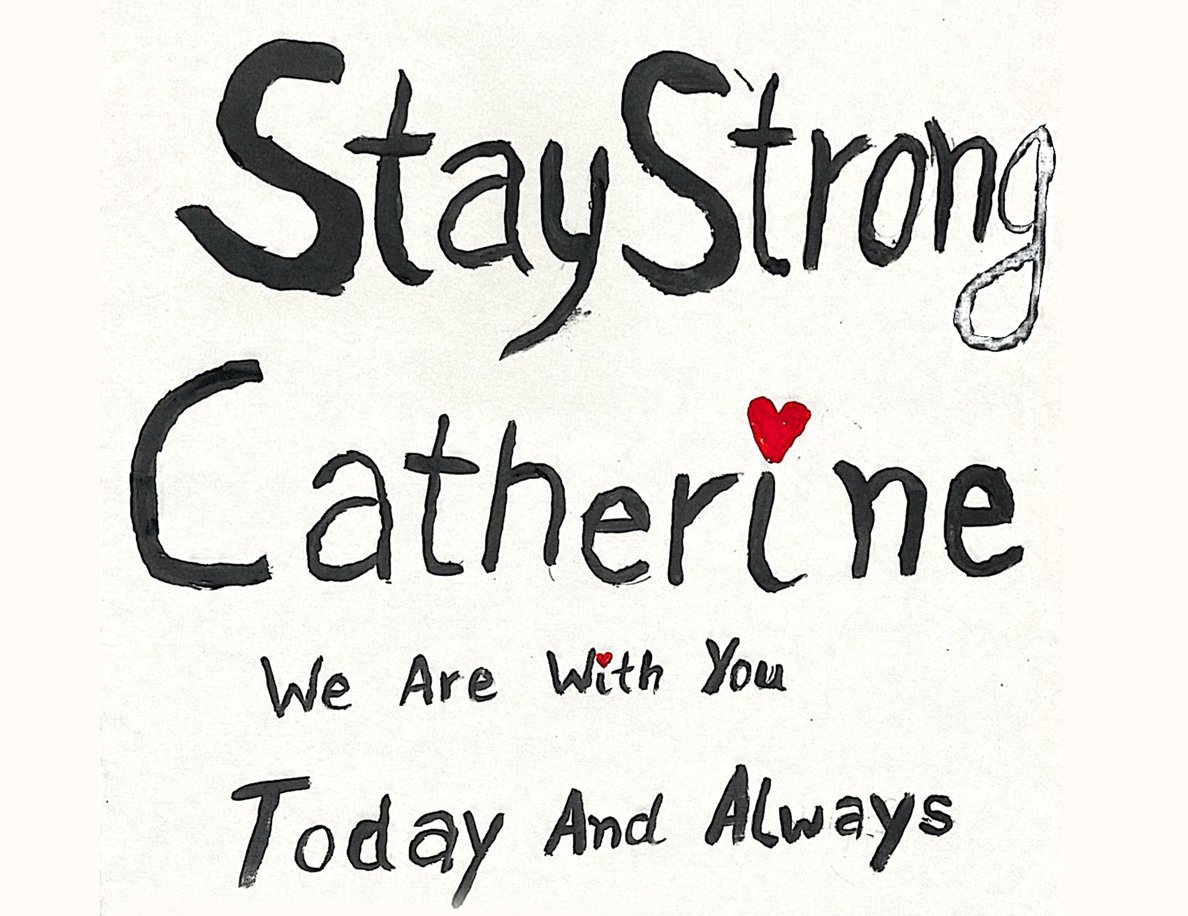 Stay Strong
Catherine
We Are With You
Today And Always